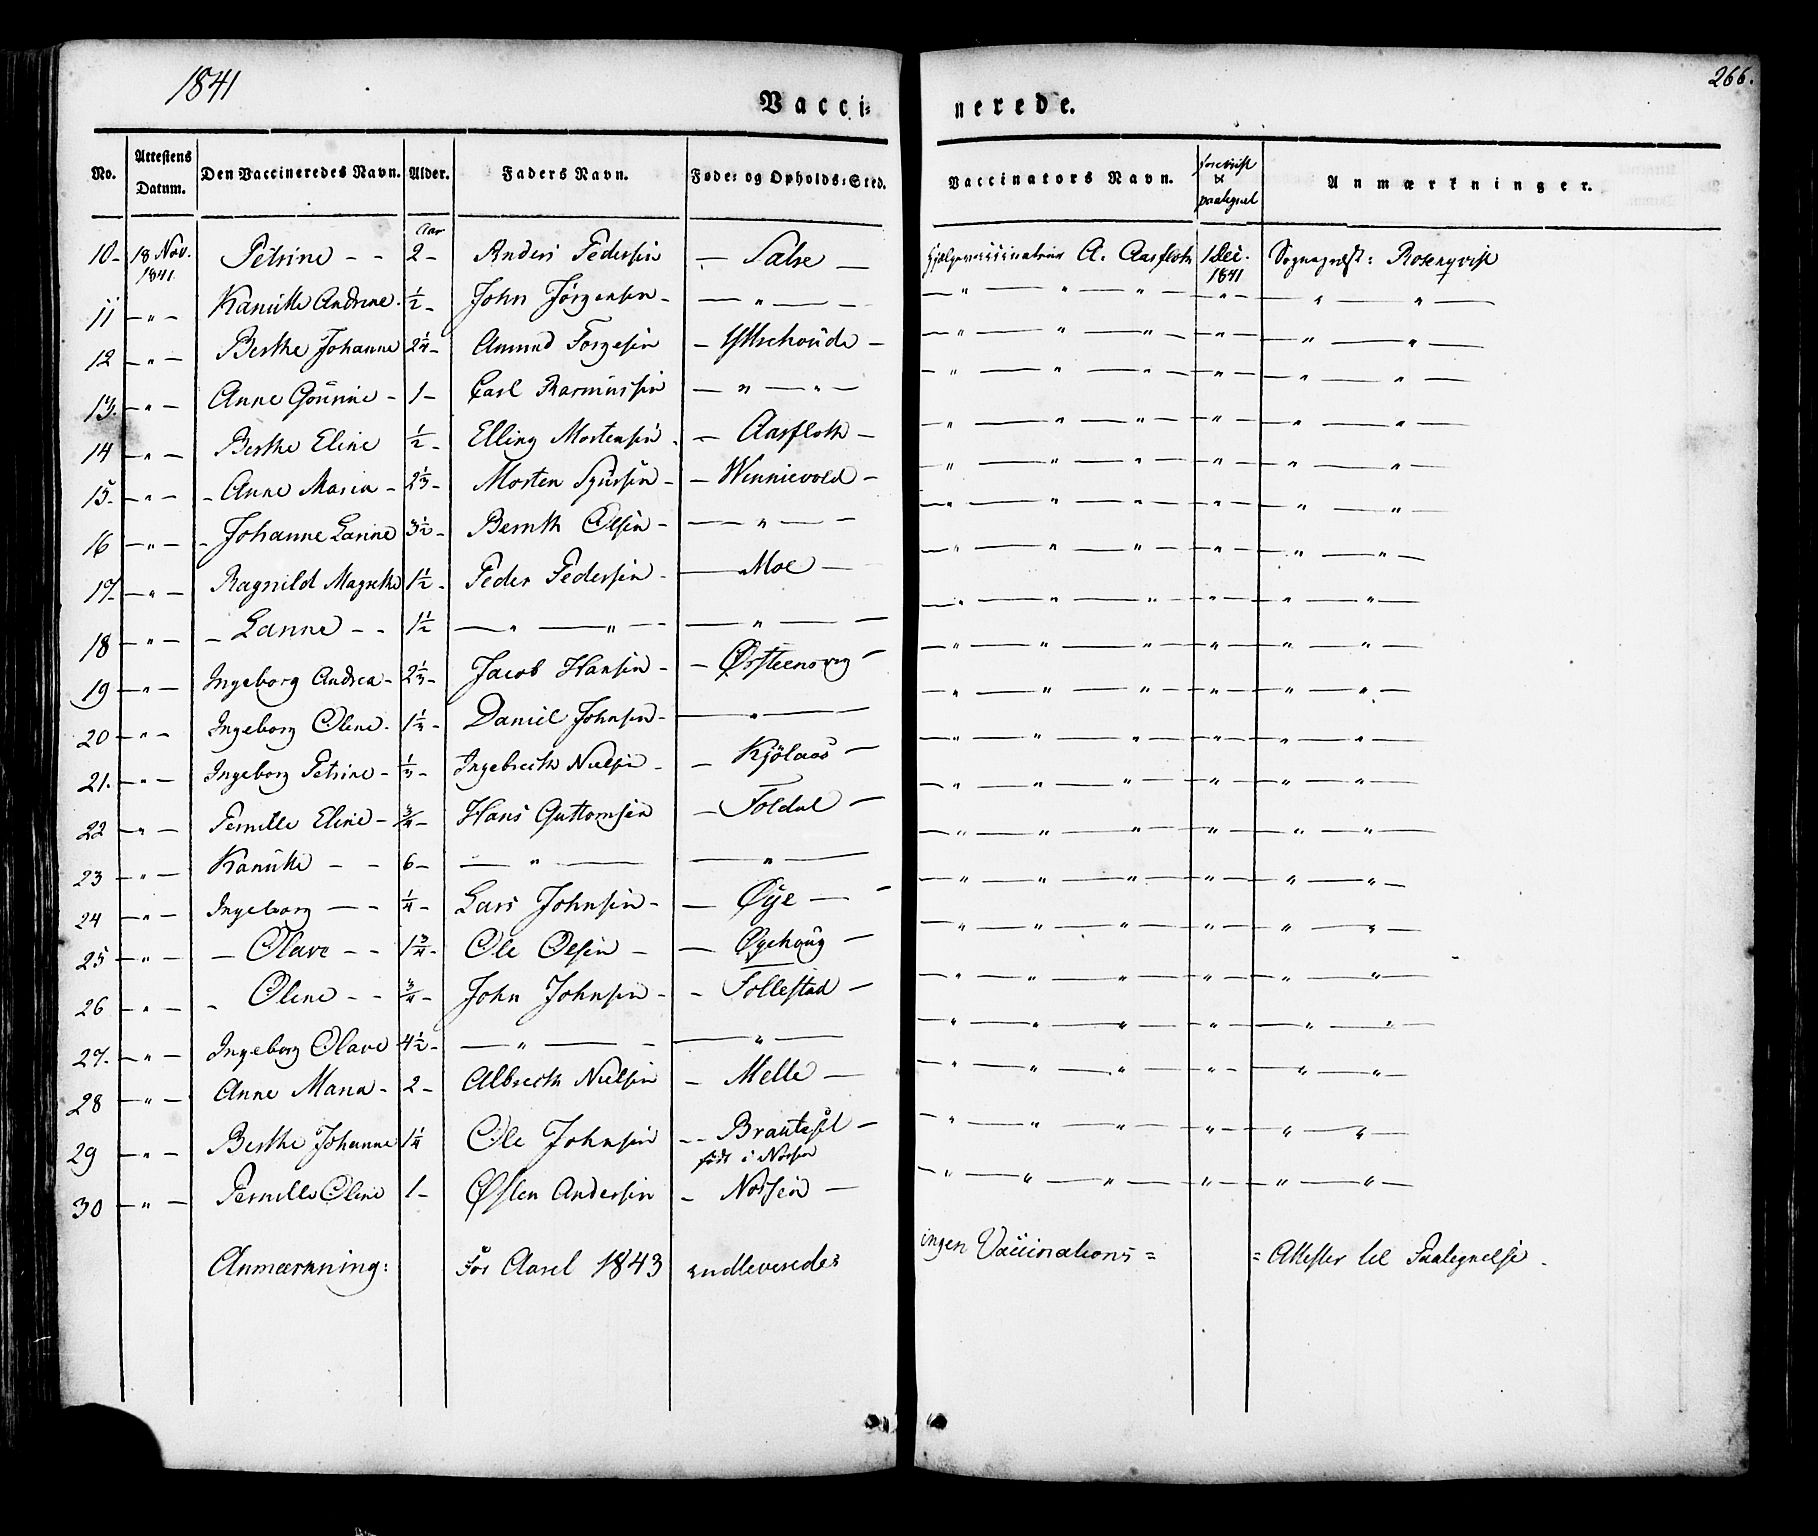 1841
266.
Vacci=
nerede.
No. Attestens Datum. Den Vaccineredes Navn. Alder. Faders Navn. Føde= og Opholds=Sted. Vaccinators Navn. forevist & paategnet Anmærkninger.
Aar
10- 18 Nov. 1841. Petrine - - 2- Anders Pedersen — Salse — Hjelpevaccinatør A. Aarfloth 1 Dec. 1841 Sognepræst: Rosenqvist
11 -"- Kanutte Andrine. ½- John Jørgensen- — " — — — " — " — " — -"- — " — " —
12 -"- Berthe Johanne 2¼- Amund Torgesen - Ytterhoúde - — " — " — " — -"- — " — " —
13. -"- Anne Goúrine - 1- Carl Rasmússen — " — " — — " — " — " — -"- — " — " —
14 -"- Berthe Eline ½- Elling Mortensen. - Aarfloth - — " — " — " — -"- — " — " —
15. -"- - Anne Maria - 2⅓- Morten Sjúrsen- - Winnievold - — " — " — " — -"- — " — " —
16 -"- - Johanne Larine 3½- Bernth Olsen- — " — — — " — " — " — -"- — " — " —
17- -"- Ragnild Magrethe 1½- Peder Pedersen- — Moe — — " — " — " — -"- — " — " —
18 -"- - Lanne - - 1½ — " — " — — " — — — " — " — " — -"- — " — " —
19 -"- Ingeborg Andrea- 2⅓- Jacob Hansen- - Ørsteensvig - — " — " — " — -"- — " — " —
20 -"- Ingeborg Oline. 1⅓- Daniel Johnsen- — " — — — " — " — " — -"- — " — " —
21. -"- Ingeborg Petrine- ⅓- Ingebreth Nielsen- - Kjølaas — — " — " — " — -"- — " — " —
22 -"- Pernille Eline- ¾- Hans Guttomsen - Foldal — — " — " — " — -"- — " — " —
23 -"- Kanútte - - 6- — " — — " — — " — " — " — -"- — " — " —
24 -"- Ingeborg — - ¼- Lars Johnsen- — Øye — - — " — " — " — -"- — " — " —
25 -"- - Olave - - 1¾- Ole Olsen - — Øyehoúg — — " — " — " — -"- — " — " —
26 -"- - Oline - - ¾- John Johnsen- - Follestad — — " — " — " — -"- — " — " —
27. -"- Ingeborg Olave 4½- — " — - — " — — " — " — " — -"- — " — " —
28 -"- Anne Maria- 2- Albreth Nielsen - Melle — — " — " — " — -"- — " — " —
29 -"- Berthe Johanne 1¼ Ole Johnsen -- Brauteset - født i Norsen — " — " — " — -"- — " — " —
30 -"- Pernille Oline 1- Østen Andersen - Norsen — — " — " — " — -"- — " — " —
Anmærkning: For Aaret 1843 indleveredes ingen Vaccinations= =Attester til Paategnelse.